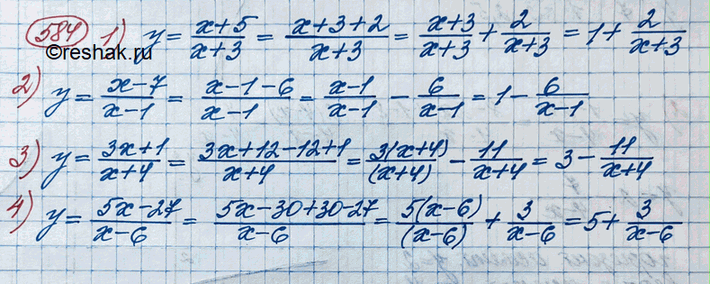 584 1) y = (x+5)/(x+3) = (x+3+2)/(x+3) = (x+3)/(x+3) + 2/(x+3) = 1 + 2/(x+3)
©reshak.ru
2) y = (x-7)/(x-1) = (x-1-6)/(x-1) = (x-1)/(x-1) - 6/(x-1) = 1 - 6/(x-1)
3) y = (3x+1)/(x+4) = (3x+12-12+1)/(x+4) = 3(x+4)/(x+4) - 11/(x+4) = 3 - 11/(x+4)
4) y = (5x-27)/(x-6) = (5x-30+30-27)/(x-6) = 5(x-6)/(x-6) + 3/(x-6) = 5 + 3/(x-6)